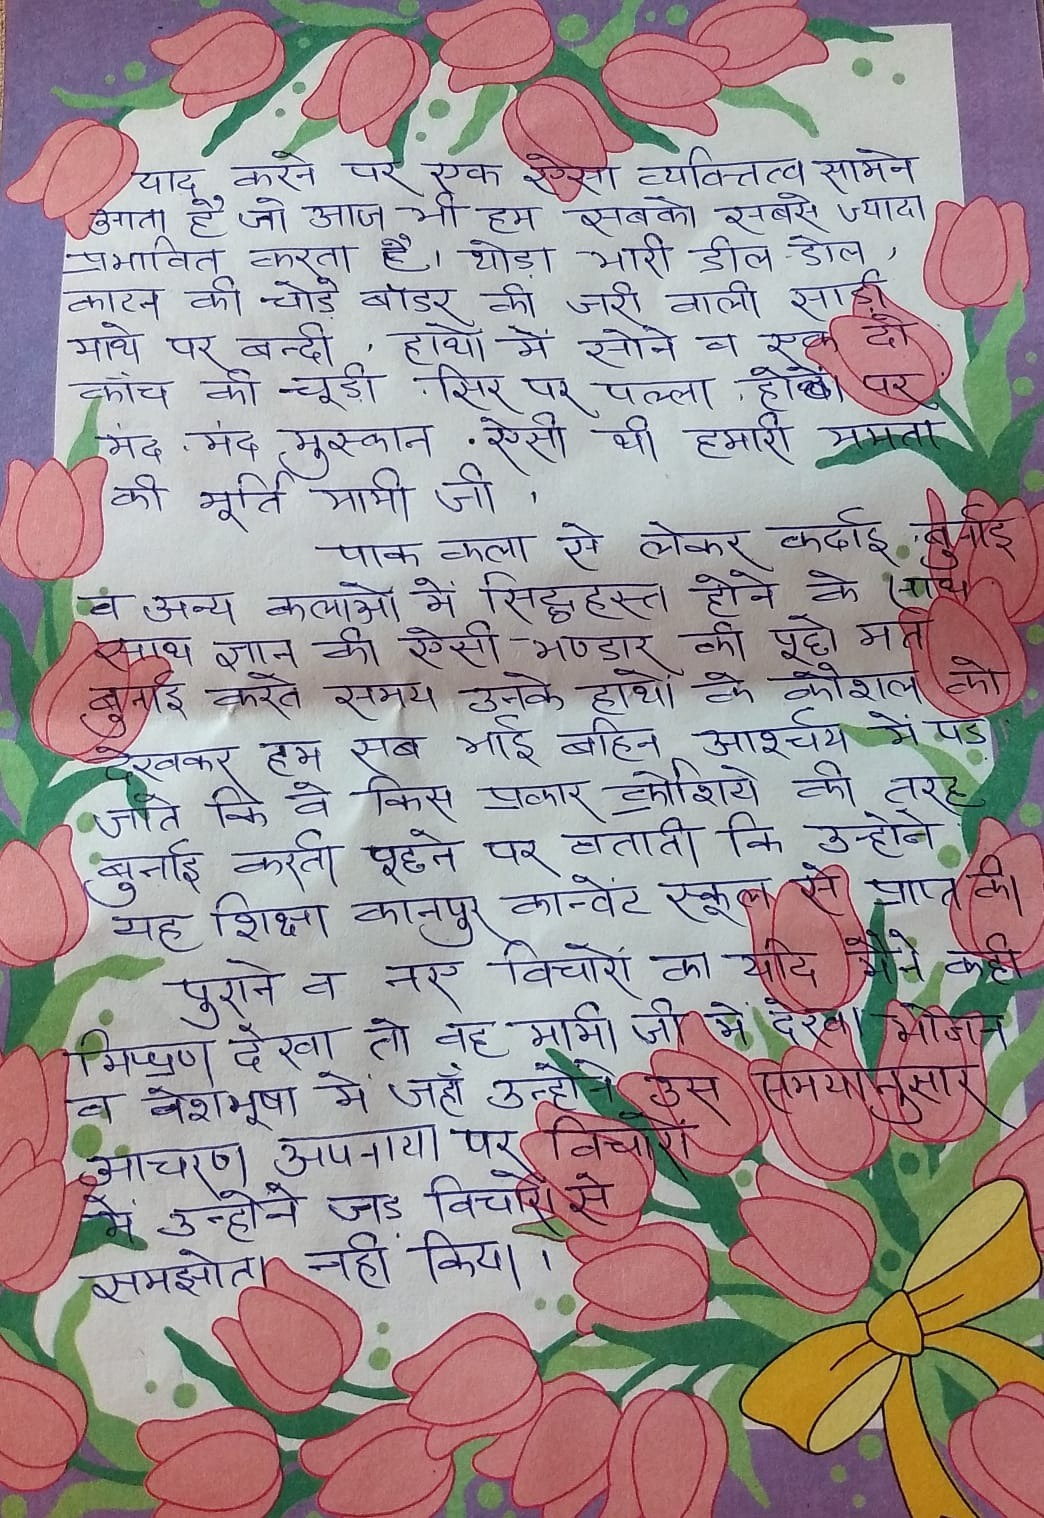 याद करने पर एक ऐसा व्यक्तित्व सामने
आता है जो आज भी हम सबको सबसे ज्यादा
प्रभावित करता है। थोड़ा भारी डील-डोल,
काटन की चोड़े बॉडर की जरी वाली साड़ी
माथे पर बन्दी, हाथों में सोने व एक दो
काँच की चूड़ी सिर पर पल्ला, होठों पर
मंद-मंद मुस्कान. ऐसी थी हमारी ममता
की मूर्ति मामी जी,
पाक कला से लेकर कढ़ाई, बुनाई
व अन्य कलाओं में सिद्धहस्त होने के साथ
साथ ज्ञान की ऐसी भण्डार की पूछो मत
बुनाई करते समय उनके हाथों के कौशल को
देखकर हम सब भाई बहिन आश्चर्य में पड
जाते कि वे किस प्रकार क्रोशिये की तरह
बुनाई करती पूछने पर बताती कि उन्होने
यह शिक्षा कानपुर कान्वेंट स्कूल से प्राप्त की
पुराने व नए विचारों का यदि मैंने कही
मिश्रण देखा तो वह मामी जी में देखा भोजन
व वेशभूषा में जहाँ उन्होंने उस समयानुसार
आचरण अपनाया पर विचारों
में उन्होने जड़ विचारों से
समझोता नहीं किया।